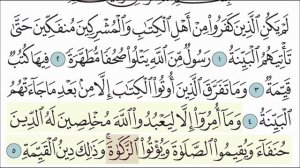 لَمْ يَكُنِ ٱلَّذِينَ كَفَرُوا۟ مِنْ أَهْلِ ٱلْكِتَٰبِ وَٱلْمُشْرِكِينَ مُنفَكِّينَ حَتَّىٰ
تَأْتِيَهُمُ ٱلْبَيِّنَةُ ١ رَسُولٌ مِّنَ ٱللَّهِ يَتْلُوا۟ صُحُفًا مُّطَهَّرَةً ٢ فِيهَا كُتُبٌ
قَيِّمَةٌ ٣ وَمَا تَفَرَّقَ ٱلَّذِينَ أُوتُوا۟ ٱلْكِتَٰبَ إِلَّا مِنۢ بَعْدِ مَا جَآءَتْهُمُ
ٱلْبَيِّنَةُ ٤ وَمَآ أُمِرُوٓا۟ إِلَّا لِيَعْبُدُوا۟ ٱللَّهَ مُخْلِصِينَ لَهُ ٱلدِّينَ
حُنَفَآءَ وَيُقِيمُوا۟ ٱلصَّلَوٰةَ وَيُؤْتُوا۟ ٱلزَّكَوٰةَ ۚ وَذَٰلِكَ دِينُ ٱلْقَيِّمَةِ ٥